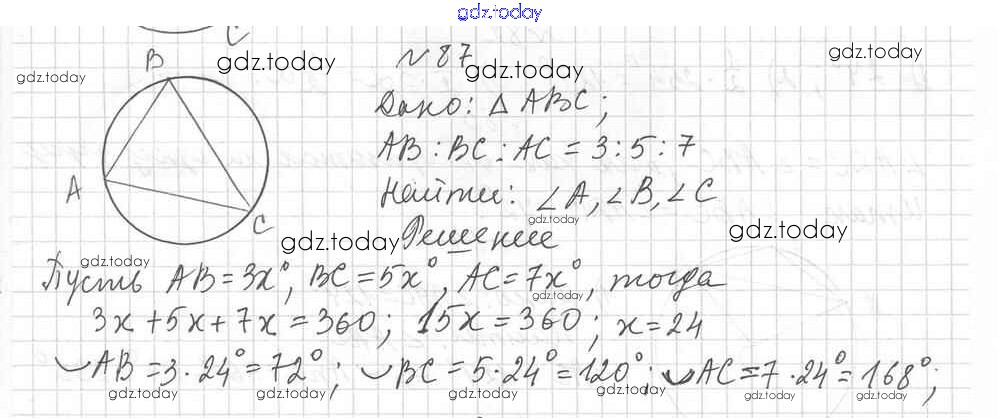 gdz.today
C
B
gdz.today
gdz.today
№87
gdz.today
gdz.today
Дано: △ABC;
AB : BC : AC = 3 : 5 : 7
A
Найти: ∠A, ∠B, ∠C
gdz.today
C
gdz.today
Решение
gdz.today
gdz.today
Пусть AB = 3x°, BC = 5x°, AC = 7x°, тогда
gdz.today
3x + 5x + 7x = 360; 15x = 360; x = 24
◡AB = 3 · 24° = 72°; ◡BC = 5 · 24° = 120°; ◡AC = 7 · 24° = 168°;
gdz.today gdz.today gdz.today gdz.today gdz.today gdz.today